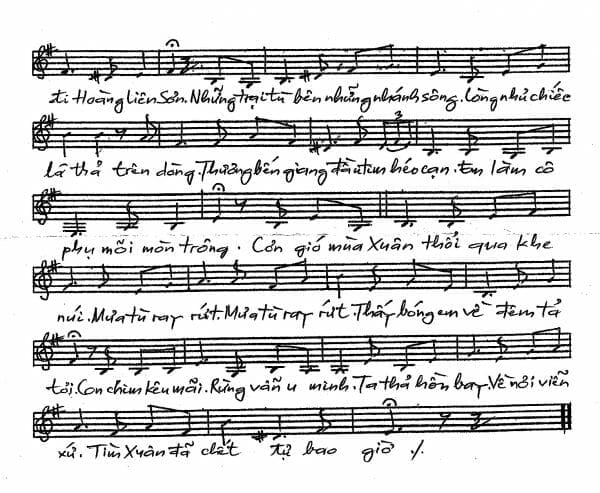 đi Hoàng Liên Sơn. Những trại tù bên những nhánh sông. Lòng như chiếc
lá thả trên dòng. Thương bến giang đầu tim héo cạn. em làm cô
phụ mỏi mòn trông. Cơn gió mùa Xuân thổi qua khe
núi. Mưa tù ray rứt. Mưa tù ray rứt. Thấy bóng em về đêm tả
tơi. Con chim kêu mãi. Rừng vẫn u minh. Ta thả hồn bay. Về nơi viễn
xứ. Tim Xuân đã chết tự bao giờ ./.